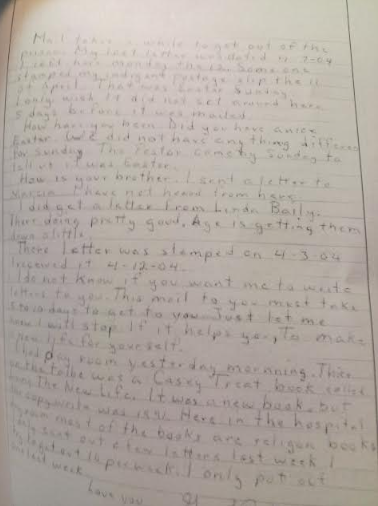 Mail takes a while to get out of the
prison. My last letter was dated 4-7-04
it left here Monday the 12. Some one
stamped my indigent postage slip the 11
of April. That was Easter Sunday.
I only wish it did not set around here
5 days before it was mailed.
How have you been. Did you have a nice
Easter. We did not have any thing different
for Sunday. The Pastor came by Sunday to
tell us it was Easter.
How is your brother. I sent a letter to
I have not heard from her.
I did get a letter from Linda Baily.
There doing pretty good. Age is getting them
down a little.
There letter was stamped on 4-3-04
I received it 4-12-04.
I do not know if you want me to write
letters to you. This mail to you must take
days to get to you. Just let me
know I will stop If it helps you, To make
a new life for yourself.
I had day room yesterday morning. There
was a Casey Treat book called
The New Life. It was a new book, but
the copywrite was Here in the hospital
most of the books are religon books
I only sent out a few letters last week I
try to get out 10 per week. I only put out
last week.
Love you